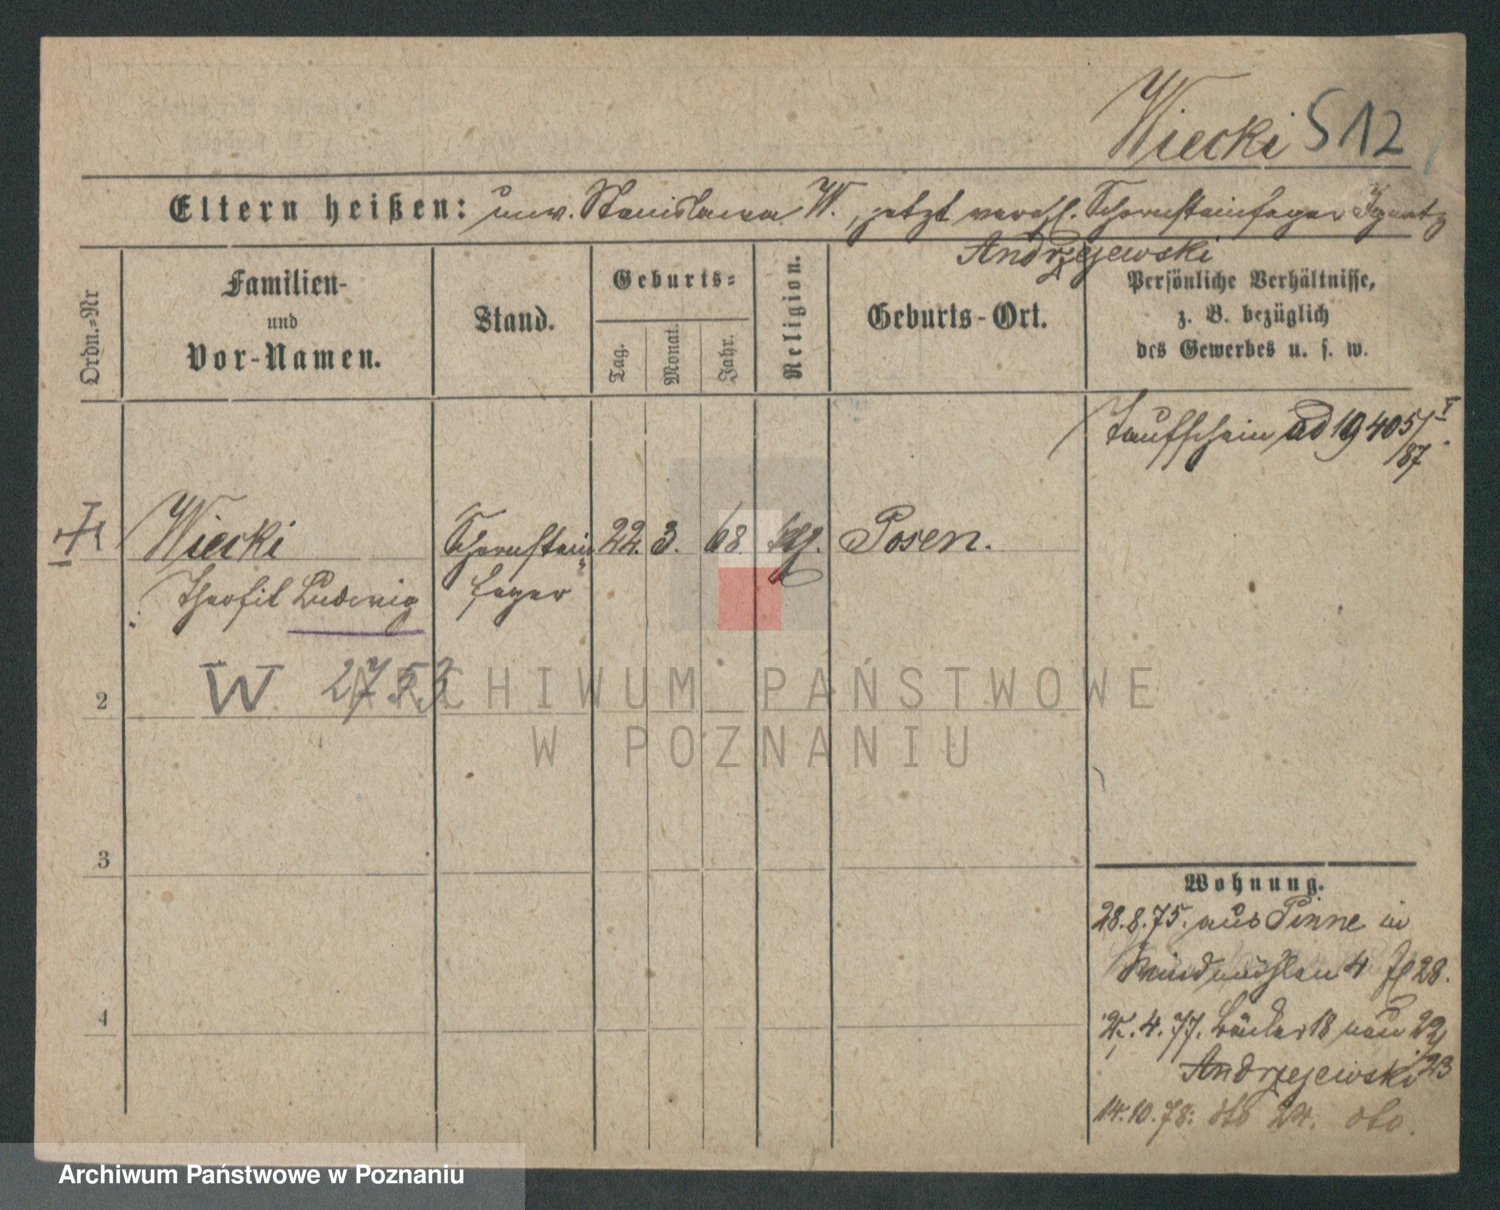 Wiecki 512
Eltern heißen: unv. Stanislawa W., jetzt verehl. Schornsteinfeger Ignatz
Andrzejewski
Ordn.=Nr
Familien-
und
Vor-Namen.
Stand.
Geburts=
Tag.
Monat.
Jahr.
Religion.
Geburts-Ort.
Persönliche Verhältnisse,
z. B. bezüglich
des Gewerbes u. s. w.
Taufschein ad 19405/I.
/87
Wiecki Schornstein= 22. 3. 68 kth. Posen.
Theofil Ludwig feger
W 2753
2
3
4
Wohnung.
28.8.75. aus Pinne in
Windmühlen 4 28.
4.77. Bäcker 18 neu 22/
Andrzejewski 23
14.10.78. dto 24. dto.
ARCHIWUM PAŃSTWOWE
W POZNANIU
Archiwum Państwowe w Poznaniu